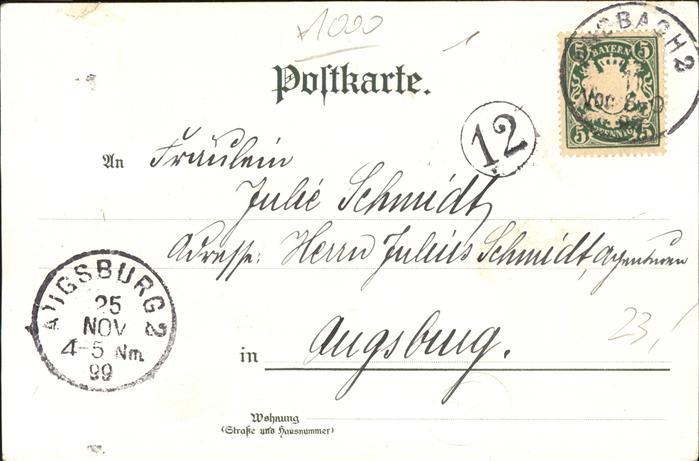 1000
Postkarte.
BACH 2
BAYERN
5 5
5 PFENNIG 5
12
An Fräulein
Julie Schmidt,
Adresse: Herrn Julius Schmidt, Agenturen
AUGSBURG 2
25
NOV
4-5 Nm.
99
23,
in Augsburg.
Wohnung
(Straße und Hausnummer)